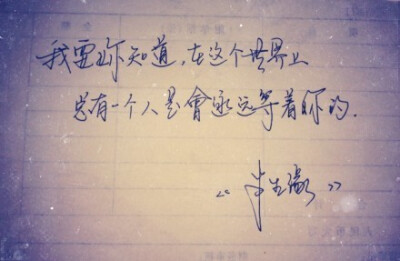 我要你知道,在这个世界上
总有一个人是會永远等着你的.
“半生缘”